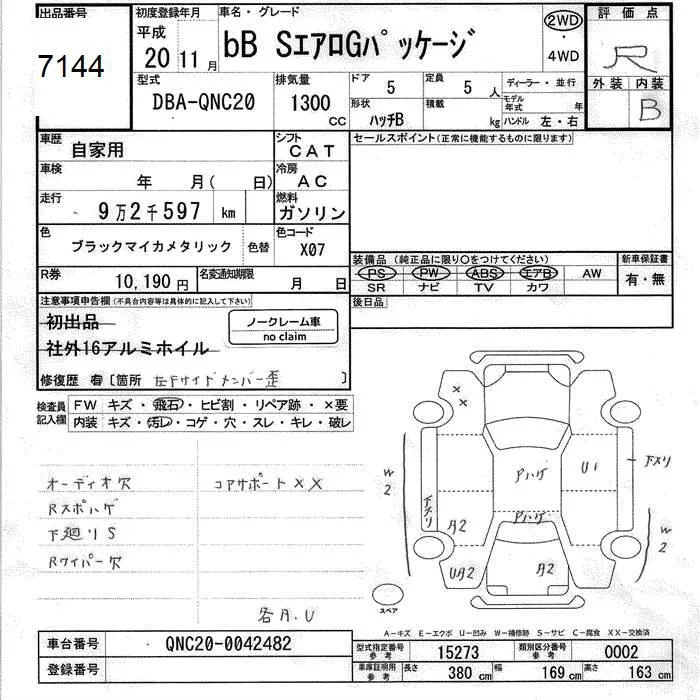 出品番号 初度登録年月 車名・グレード 評価点
7144 平成 20 11月 bB SエアロGパッケージ 2WD・4WD R
型式 排気量 ドア 5 定員 5 人 ディーラー・並行 外装 内装
DBA-QNC20 1300 CC 形状 ハッチB 積載 kg モデル年式 年 ハンドル 左・右 B
車歴 自家用 シフト CAT セールスポイント(正常に機能するものに限ります)
車検 年 月( 日) 冷房 AC
走行 9万2千597 km 燃料 ガソリン
色 ブラックマイカメタリック 色替 色コード X07
装備品 (純正品に限り○をつけてください) 新車保証書
PS PW ABS エアB AW 有・無
SR ナビ TV カワ
R券 10,190円 名変通知期限 月 日
注意事項申告欄(不具合内容等は具体的に記入して下さい) 後日品
初出品 ノークレーム車
社外16アルミホイル no claim
修復歴 有 [箇所 左Fサイドメンバー歪 ]
検査員記入欄 FW キズ・飛石・ヒビ割・リペア跡・×要
内装 キズ・汚レ・コゲ・穴・スレ・キレ・破レ
オーディオ欠 コアサポートXX
Rスポハゲ
下廻りS
Rワイパー欠
各A.U
X
X
W2 Aハゲ U1 下スリ
下スリ A2 Aハゲ W2
UA2 A2
スペア
A-キズ E-エクボ U-凹み W-補修跡 S-サビ C-腐食 XX-交換済
車台番号 QNC20-0042482 型式指定番号 参考 15273 類別区分番号 参考 0002
登録番号 車庫証明用 参考 長さ 380 cm 幅 169 cm 高さ 163 cm